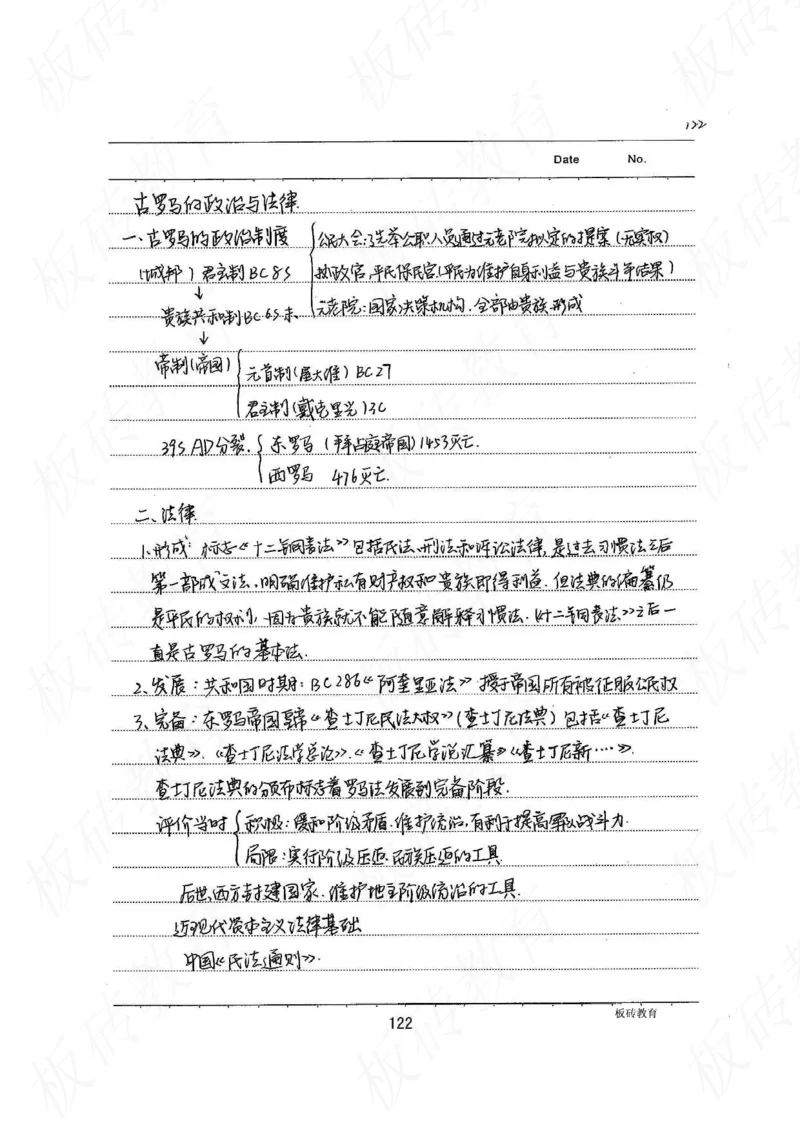 122
Date No.
古罗马的政治与法律.
一、古罗马的政治制度 公民大会:选举公职人员通过元老院拟定的提案(无实权)
(城邦) 君主制 BC 8S 执政官,平民保民官(平民为维护自身利益与贵族斗争结果)
↓
贵族共和制 BC 6S 末 元老院:国家决策机构,全部由贵族形成
↓
帝制(帝国) 元首制(屋大维) BC27
君主制(戴克里先)3C
395 AD分裂. 东罗马 (拜占庭帝国)1453灭亡.
西罗马 476灭亡.
二、法律
1.形成: 标志《十二铜表法》包括民法、刑法和诉讼法律,是过去习惯法之后
第一部成文法,明确维护私有财产权和贵族即得利益,但法典的编纂仍
是平民的权利,因为贵族就不能随意解释习惯法.《十二铜表法》之后一
直是古罗马的基本法.
2、发展:共和国时期: BC286《阿奎里亚法》授予帝国所有被征服公民权
3、完备:东罗马帝国皇帝《查士丁尼民法大权》(查士丁尼法典)包括《查士丁尼
法典》.《查士丁尼法学总论》.《查士丁尼学说汇纂》《查士丁尼新····》.
查士丁尼法典的颁布标志着罗马法发展到完备阶段.
评价当时 积极:缓和阶级矛盾.维护统治,有利于提高军队战斗力.
局限:实行阶级压迫 民族压迫的工具
后世,西方封建国家.维护地主阶级统治的工具.
近现代资本主义法律基础
中国《民法通则》.
板砖教育
122